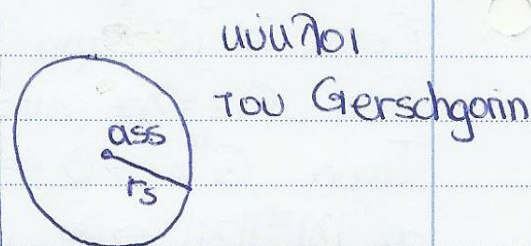 κύκλοι
του Gerschgorin
ass
rs